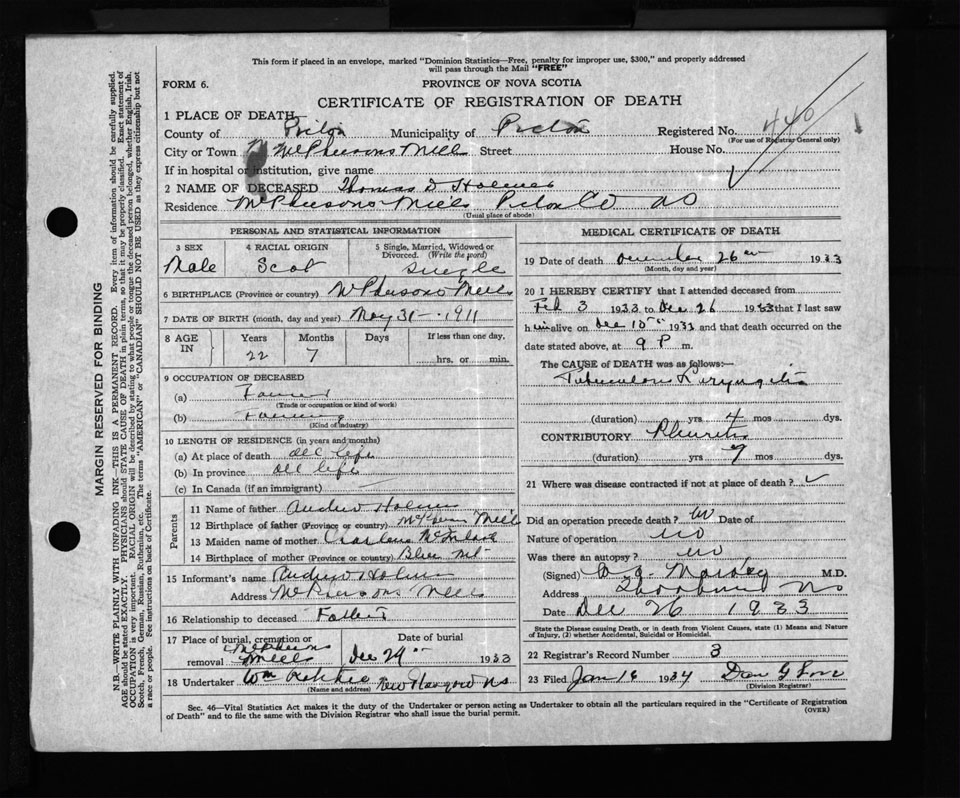 This form if placed in an envelope, marked "Dominion Statistics—Free, penalty for improper use, $300," and properly addressed
will pass through the Mail "FREE"
FORM 6.
PROVINCE OF NOVA SCOTIA
CERTIFICATE OF REGISTRATION OF DEATH
1 PLACE OF DEATH
County of Pictou Municipality of Pictou Registered No. 440
(For use of Registrar General only)
City or Town McPhersons Mills Street House No.
If in hospital or institution, give name
2 NAME OF DECEASED Thomas D Holmes
Residence McPhersons Mills Pictou Co
(Usual place of abode)
PERSONAL AND STATISTICAL INFORMATION
3 SEX Male
4 RACIAL ORIGIN Scot
5 Single, Married, Widowed or
Divorced. (Write the word)
Single
6 BIRTHPLACE (Province or country) McPhersons Mills
7 DATE OF BIRTH (month, day and year) May 31 1911
8 AGE IN
Years Months Days If less than one day,
22 7 hrs. or min.
9 OCCUPATION OF DECEASED
(a) Farmer
(Trade or occupation or kind of work)
(b) Farming
(Kind of industry)
10 LENGTH OF RESIDENCE (in years and months)
(a) At place of death all life
(b) In province all life
(c) In Canada (if an immigrant)
Parents
11 Name of father Andrew Holmes
12 Birthplace of father (Province or country) Mills
13 Maiden name of mother
14 Birthplace of mother (Province or country) Blue Mt
15 Informant's name Andrew Holmes
Address McPhersons Mills
16 Relationship to deceased Father
17 Place of burial, cremation or
removal McPhersons Mills
Date of burial
Dec 29 1933
18 Undertaker Wm New Glasgow NS
(Name and address)
MEDICAL CERTIFICATE OF DEATH
19 Date of death December 26 1933
(Month, day and year)
20 I HEREBY CERTIFY that I attended deceased from
Feb 3 1933 to Dec 26 1933 that I last saw
him alive on Dec 1933 and that death occurred on the
date stated above, at 9 P m.
The CAUSE OF DEATH was as follows:—
Tuberculous Laryngitis
(duration) yrs 4 mos dys.
CONTRIBUTORY Pleuritis
(duration) yrs 7 mos dys.
21 Where was disease contracted if not at place of death?
Did an operation precede death? no Date of
Nature of operation no
Was there an autopsy? no
(Signed) M.D.
Address Thorburn NS
Date Dec 26 1933
State the Disease causing Death, or in death from Violent Causes, state (1) Means and Nature
of Injury, (2) whether Accidental, Suicidal or Homicidal.
22 Registrar's Record Number 3
23 Filed Jan 16 1934
(Division Registrar)
Sec. 46—Vital Statistics Act makes it the duty of the Undertaker or person acting as Undertaker to obtain all the particulars required in the "Certificate of Registration
of Death" and to file the same with the Division Registrar who shall issue the burial permit.
(OVER)
MARGIN RESERVED FOR BINDING
N.B.—WRITE PLAINLY WITH UNFADING INK—THIS IS A PERMANENT RECORD. Every item of information should be carefully supplied.
AGE should be stated EXACTLY. PHYSICIANS should STATE CAUSE OF DEATH in plain terms, so that it may be properly classified. Exact statement of
OCCUPATION is very important. RACIAL ORIGIN will be described by stating to what people or tongue the deceased person belonged, whether English, Irish,
Scotch, French, German, Russian, Ruthenian, etc. The terms "AMERICAN" or "CANADIAN" SHOULD NOT BE USED as they express citizenship but not
a race or people. Fee instructions on back of Certificate.